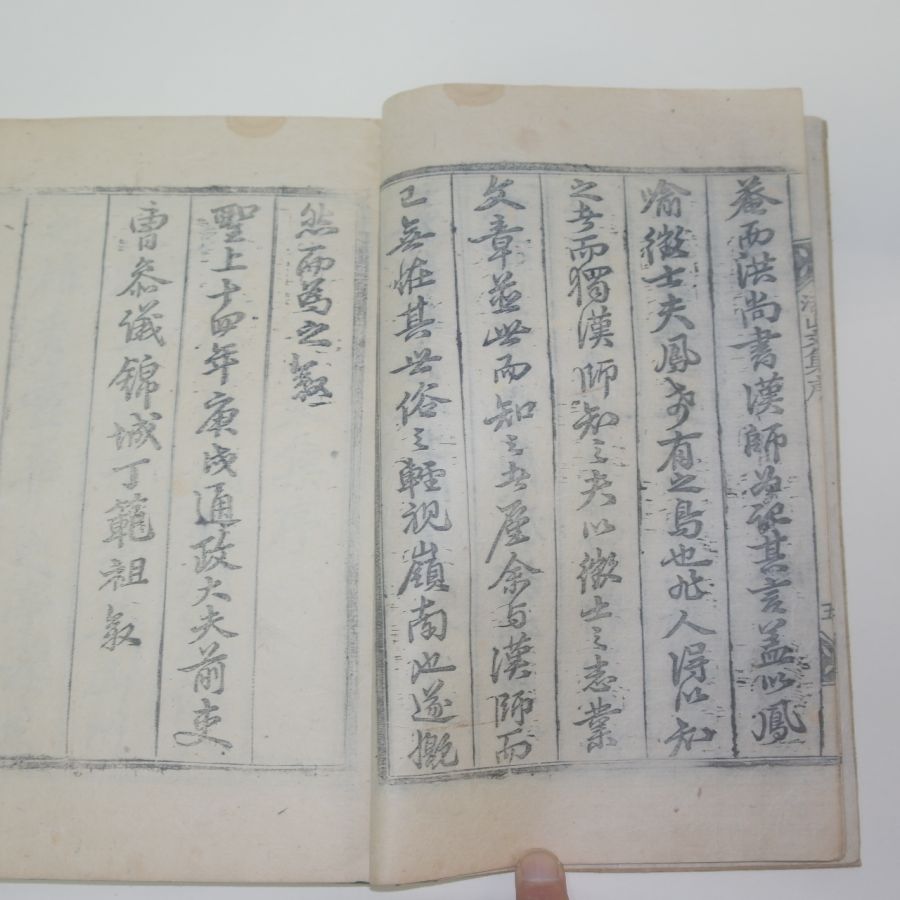 菴而洪尚書漢師為記其言盖以鳳
喻徵士夫鳳希有之鳥也非人得以知
之者而獨漢師知之夫以徵士之志業
文章並世而知之者屋余与漢師而
已無怪其世俗之輕視嶺南也遂慨
然而為之叙
聖上十四年庚戌通政大夫前吏
曹叅議錦城丁範祖叙